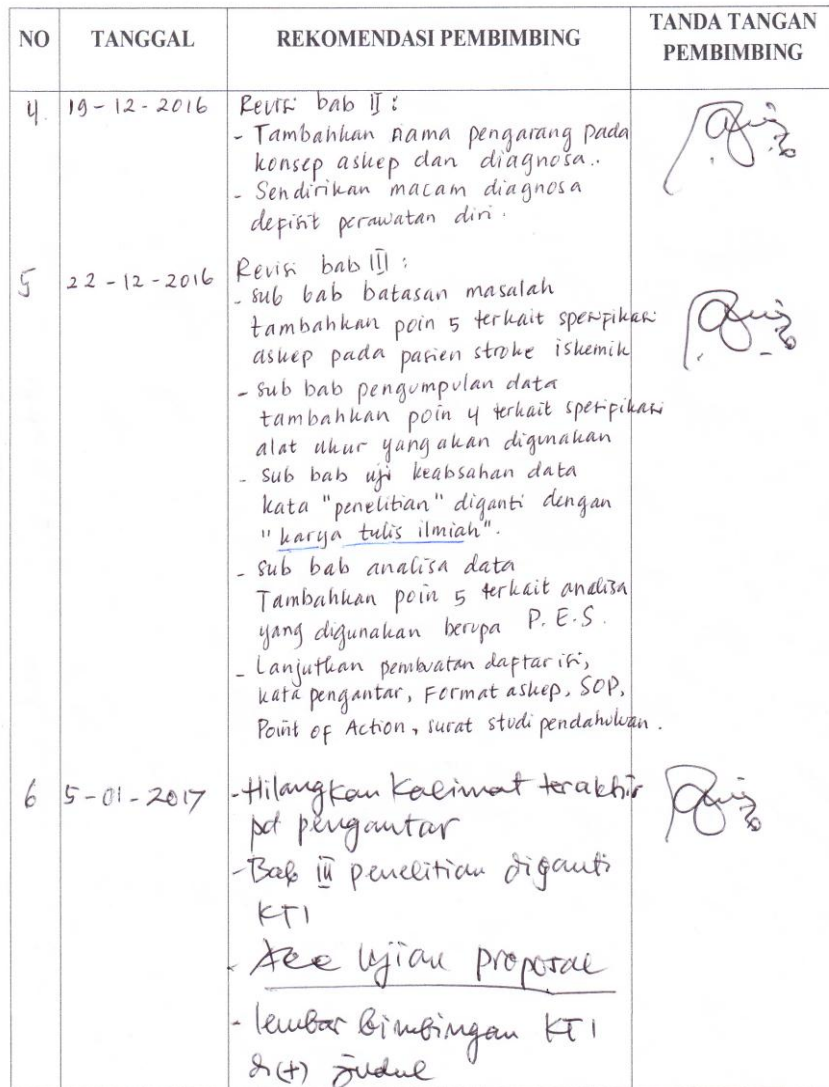 NO TANGGAL REKOMENDASI PEMBIMBING TANDA TANGAN PEMBIMBING
4. 19-12-2016 Revisi bab II :
- Tambahkan nama pengarang pada
konsep askep dan diagnosa..
- Sendirikan macam diagnosa
defisit perawatan diri.
5 22-12-2016 Revisi bab III :
- sub bab batasan masalah
tambahkan poin 5 terkait spesifikasi
askep pada pasien stroke iskemik
- sub bab pengumpulan data
tambahkan poin 4 terkait spesifikasi
alat ukur yang akan digunakan
- sub bab uji keabsahan data
kata "penelitian" diganti dengan
"karya tulis ilmiah".
- sub bab analisa data
Tambahkan poin 5 terkait analisa
yang digunakan berupa P.E.S.
- Lanjutkan pembuatan daftar isi,
kata pengantar, Format askep, SOP,
Point of Action, surat studi pendahuluan.
6 5-01-2017 - Hilangkan Kalimat terakhir
pd pengantar
- Bab III penelitian diganti
KTI
- Acc Ujian proposal
- lembar bimbingan KTI
di(+) judul